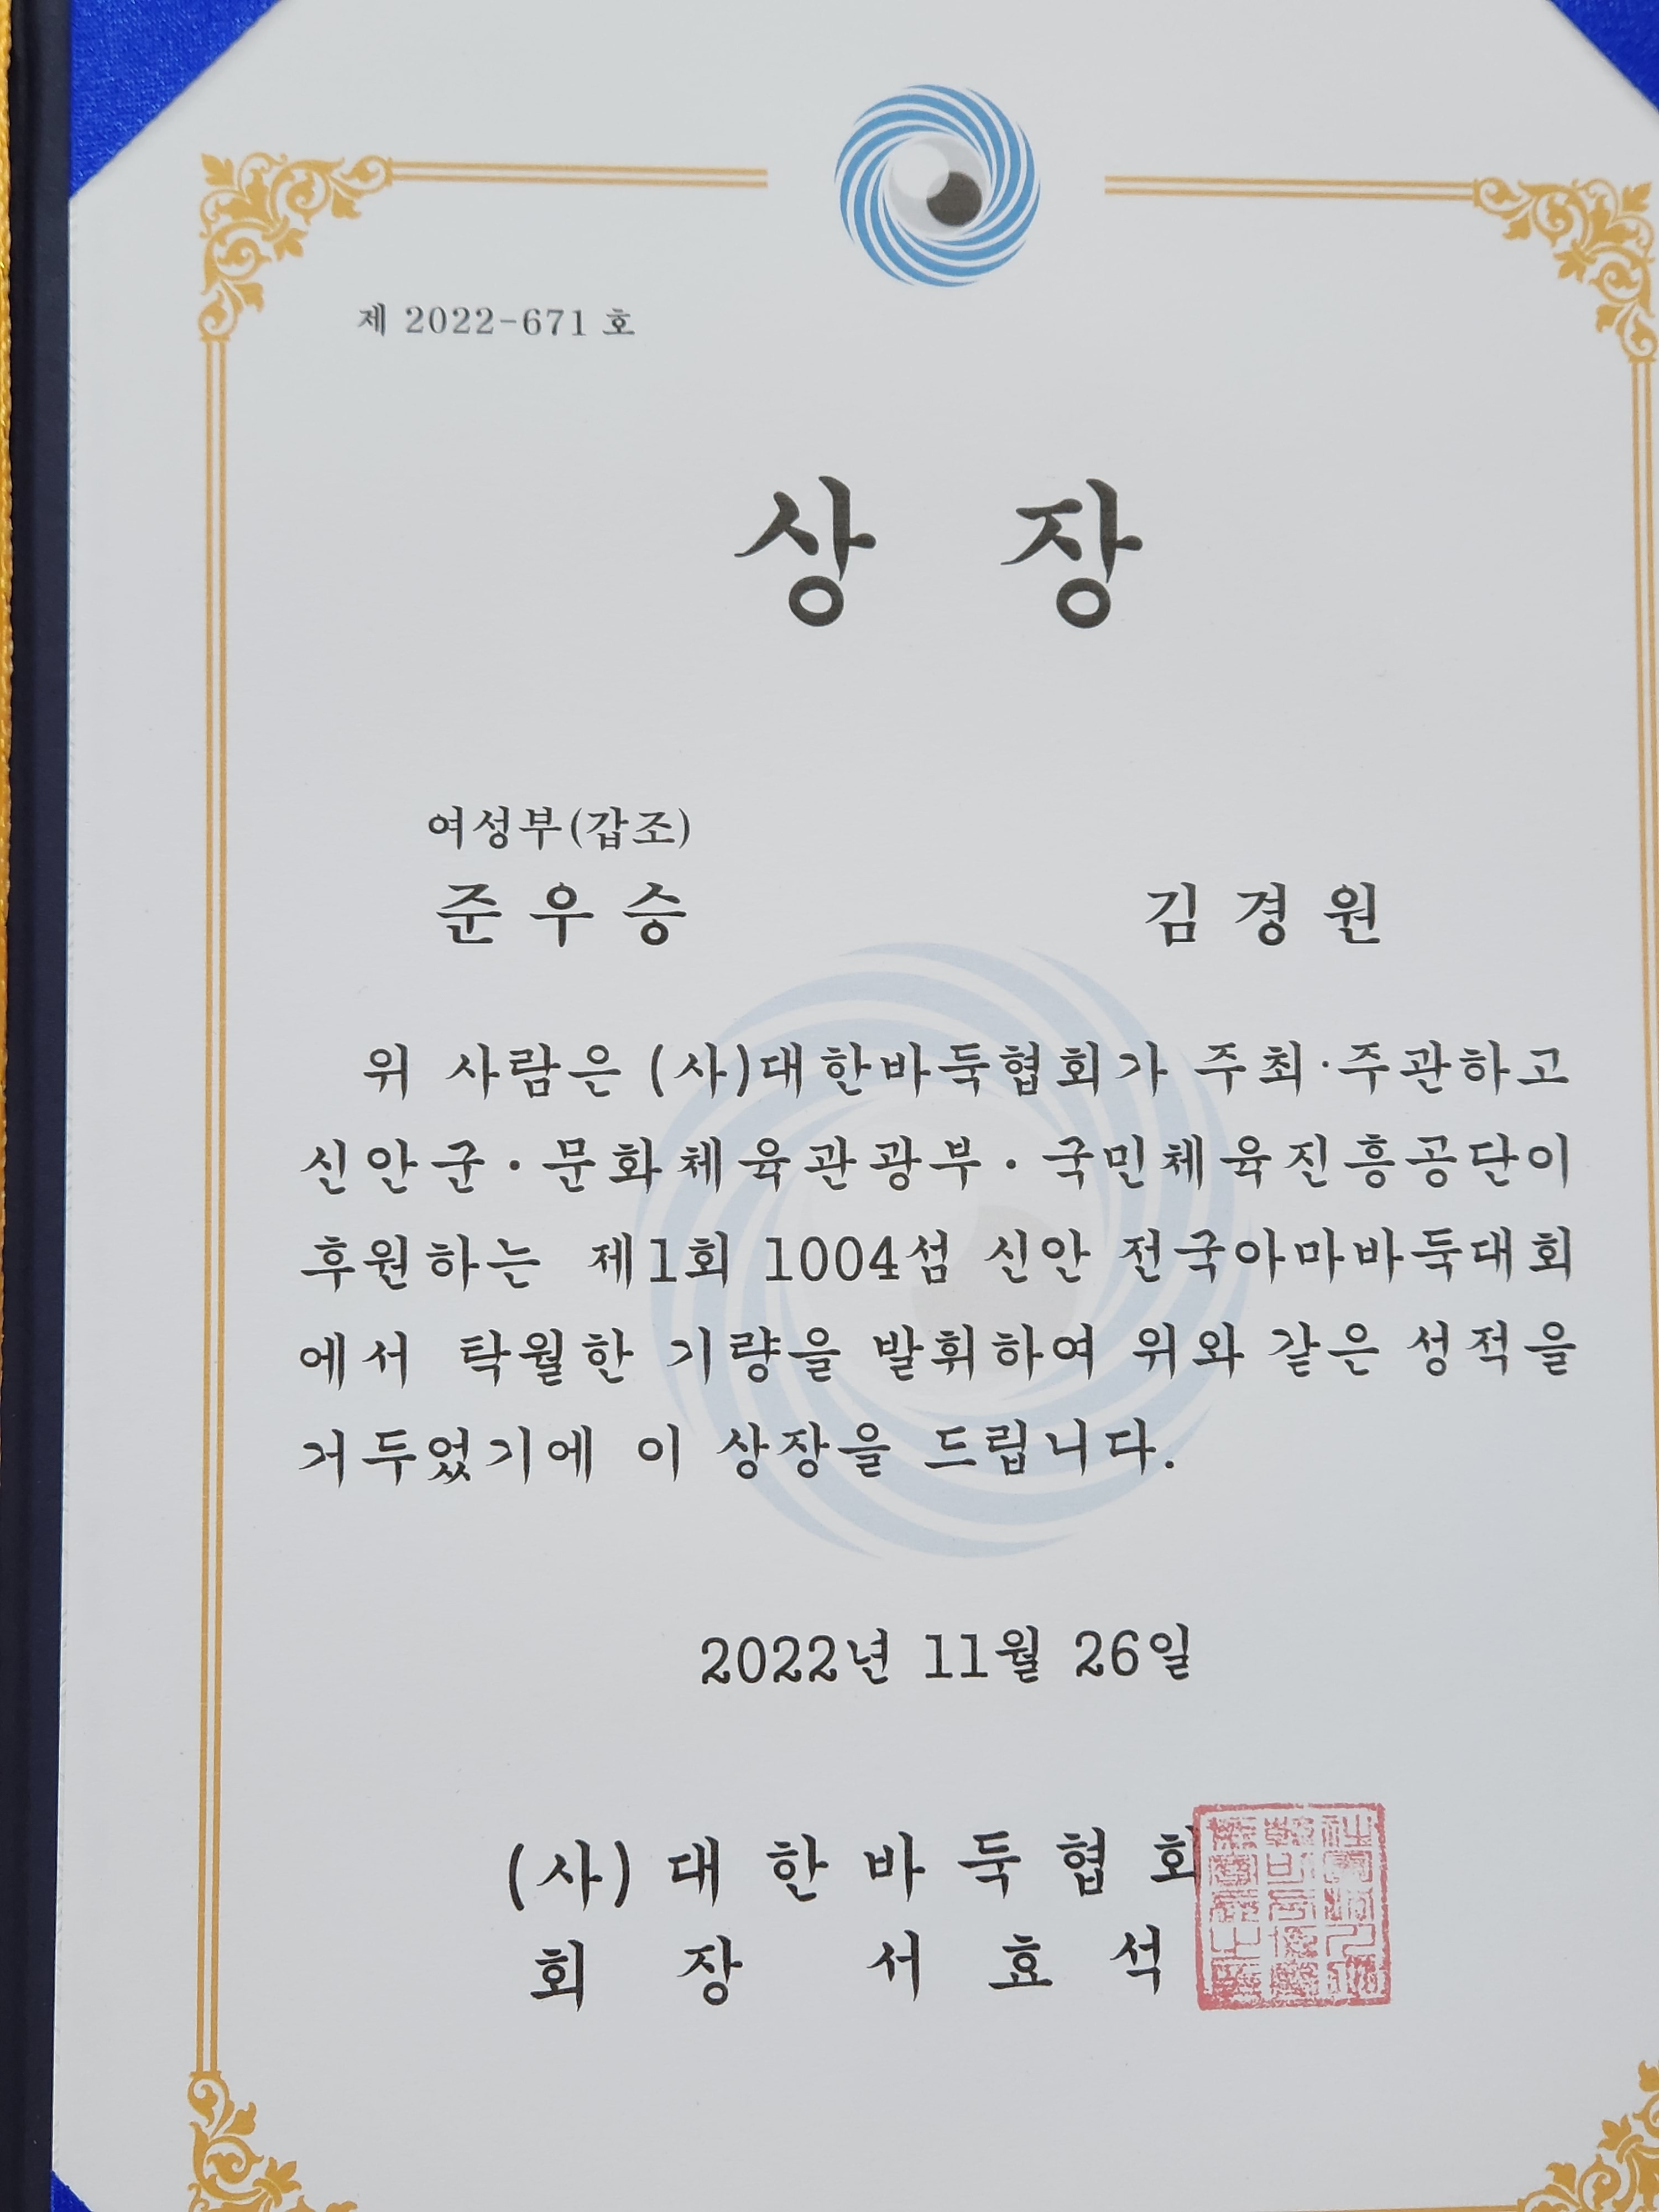 제 2022-671 호
상 장
여성부(갑조)
준우승 김경원
위 사람은 (사)대한바둑협회가 주최·주관하고
신안군·문화체육관광부·국민체육진흥공단이
후원하는 제1회 1004섬 신안 전국아마바둑대회
에서 탁월한 기량을 발휘하여 위와 같은 성적을
거두었기에 이 상장을 드립니다.
2022년 11월 26일
(사)대한바둑협회
회 장 서 효 석